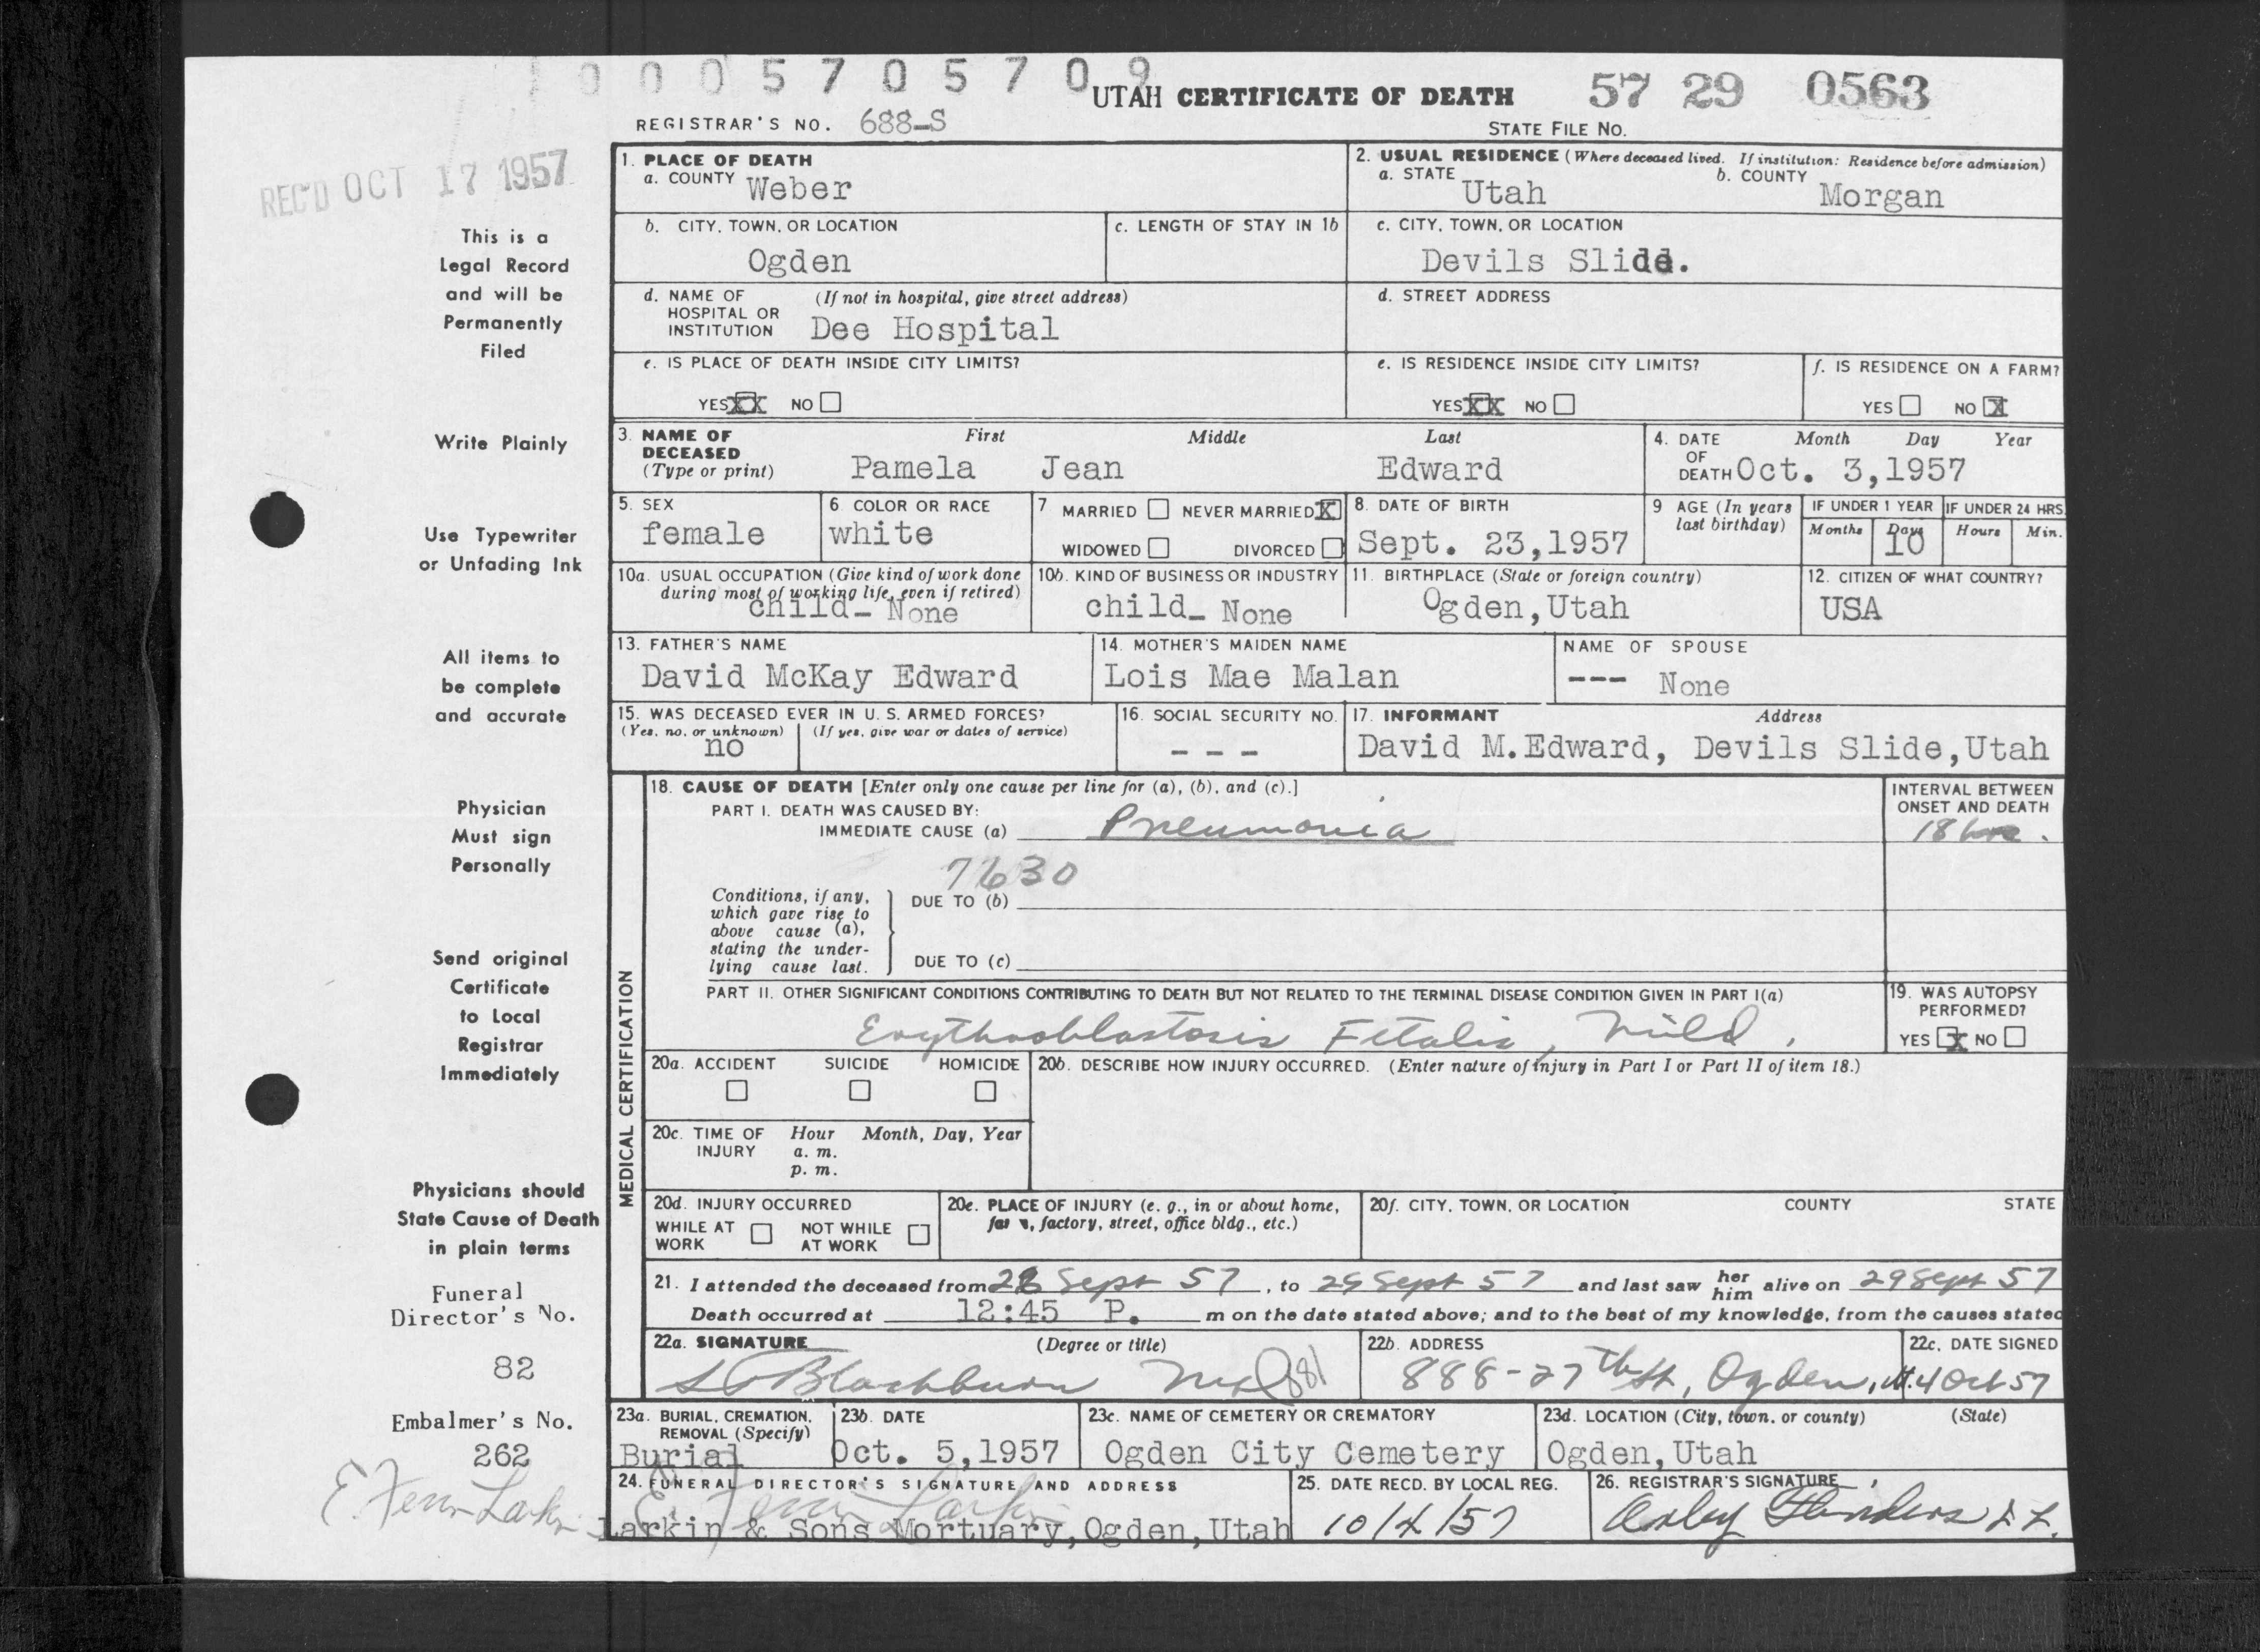 1 0 0 0 5 7 0 5 7 0 9
UTAH CERTIFICATE OF DEATH 57 29 0563
REGISTRAR'S NO. 688-S
STATE FILE No.
REC'D OCT 17 1957
This is a
Legal Record
and will be
Permanently
Filed
Write Plainly
Use Typewriter
or Unfading Ink
All items to
be complete
and accurate
Physician
Must sign
Personally
Send original
Certificate
to Local
Registrar
Immediately
Physicians should
State Cause of Death
in plain terms
Funeral
Director's No.
82
Embalmer's No.
262
E. Fern Larkin
1. PLACE OF DEATH
a. COUNTY Weber
2. USUAL RESIDENCE (Where deceased lived. If institution: Residence before admission)
a. STATE Utah b. COUNTY Morgan
b. CITY, TOWN, OR LOCATION
Ogden
c. LENGTH OF STAY IN 1b
c. CITY, TOWN, OR LOCATION
Devils Slide.
d. NAME OF HOSPITAL OR INSTITUTION (If not in hospital, give street address)
Dee Hospital
d. STREET ADDRESS
e. IS PLACE OF DEATH INSIDE CITY LIMITS?
YES XX NO
e. IS RESIDENCE INSIDE CITY LIMITS?
YES XX NO
f. IS RESIDENCE ON A FARM?
YES NO X
3. NAME OF DECEASED (Type or print) First Middle Last
Pamela Jean Edward
4. DATE OF DEATH Month Day Year
Oct. 3,1957
5. SEX
female
6 COLOR OR RACE
white
7 MARRIED NEVER MARRIED X
WIDOWED DIVORCED
8. DATE OF BIRTH
Sept. 23,1957
9 AGE (In years last birthday)
IF UNDER 1 YEAR
Months Days
10
IF UNDER 24 HRS.
Hours Min.
10a. USUAL OCCUPATION (Give kind of work done during most of working life, even if retired)
child- None
10b. KIND OF BUSINESS OR INDUSTRY
child- None
11. BIRTHPLACE (State or foreign country)
Ogden,Utah
12. CITIZEN OF WHAT COUNTRY?
USA
13. FATHER'S NAME
David McKay Edward
14. MOTHER'S MAIDEN NAME
Lois Mae Malan
NAME OF SPOUSE
--- None
15. WAS DECEASED EVER IN U. S. ARMED FORCES?
(Yes, no, or unknown) (If yes, give war or dates of service)
no
16. SOCIAL SECURITY NO.
- - -
17. INFORMANT Address
David M.Edward, Devils Slide,Utah
MEDICAL CERTIFICATION
18. CAUSE OF DEATH [Enter only one cause per line for (a), (b), and (c).]
PART I. DEATH WAS CAUSED BY:
IMMEDIATE CAUSE (a) Pneumonia
INTERVAL BETWEEN
ONSET AND DEATH
18 hrs.
7630
Conditions, if any,
which gave rise to
above cause (a),
stating the under-
lying cause last.
DUE TO (b)
DUE TO (c)
PART II. OTHER SIGNIFICANT CONDITIONS CONTRIBUTING TO DEATH BUT NOT RELATED TO THE TERMINAL DISEASE CONDITION GIVEN IN PART I(a)
Erythroblastosis Fetalis, Mild.
19. WAS AUTOPSY PERFORMED?
YES X NO
20a. ACCIDENT SUICIDE HOMICIDE
20b. DESCRIBE HOW INJURY OCCURRED. (Enter nature of injury in Part I or Part II of item 18.)
20c. TIME OF INJURY Hour Month, Day, Year
a. m.
p. m.
20d. INJURY OCCURRED
WHILE AT WORK NOT WHILE AT WORK
20e. PLACE OF INJURY (e. g., in or about home, farm, factory, street, office bldg., etc.)
20f. CITY, TOWN, OR LOCATION COUNTY STATE
21. I attended the deceased from 28 Sept 57, to 29 Sept 57 and last saw her him alive on 29 Sept 57
Death occurred at 12:45 P. m on the date stated above; and to the best of my knowledge, from the causes stated
22a. SIGNATURE (Degree or title)
Blackburn MD 881
22b. ADDRESS
888-27th St, Ogden, Ut.
22c. DATE SIGNED
4 Oct 57
23a. BURIAL, CREMATION, REMOVAL (Specify)
Burial
23b. DATE
Oct. 5,1957
23c. NAME OF CEMETERY OR CREMATORY
Ogden City Cemetery
23d. LOCATION (City, town, or county) (State)
Ogden,Utah
24. FUNERAL DIRECTOR'S SIGNATURE AND ADDRESS
E. Fern Larkin
Larkin & Sons Mortuary,Ogden,Utah
25. DATE RECD. BY LOCAL REG.
10/4/57
26. REGISTRAR'S SIGNATURE